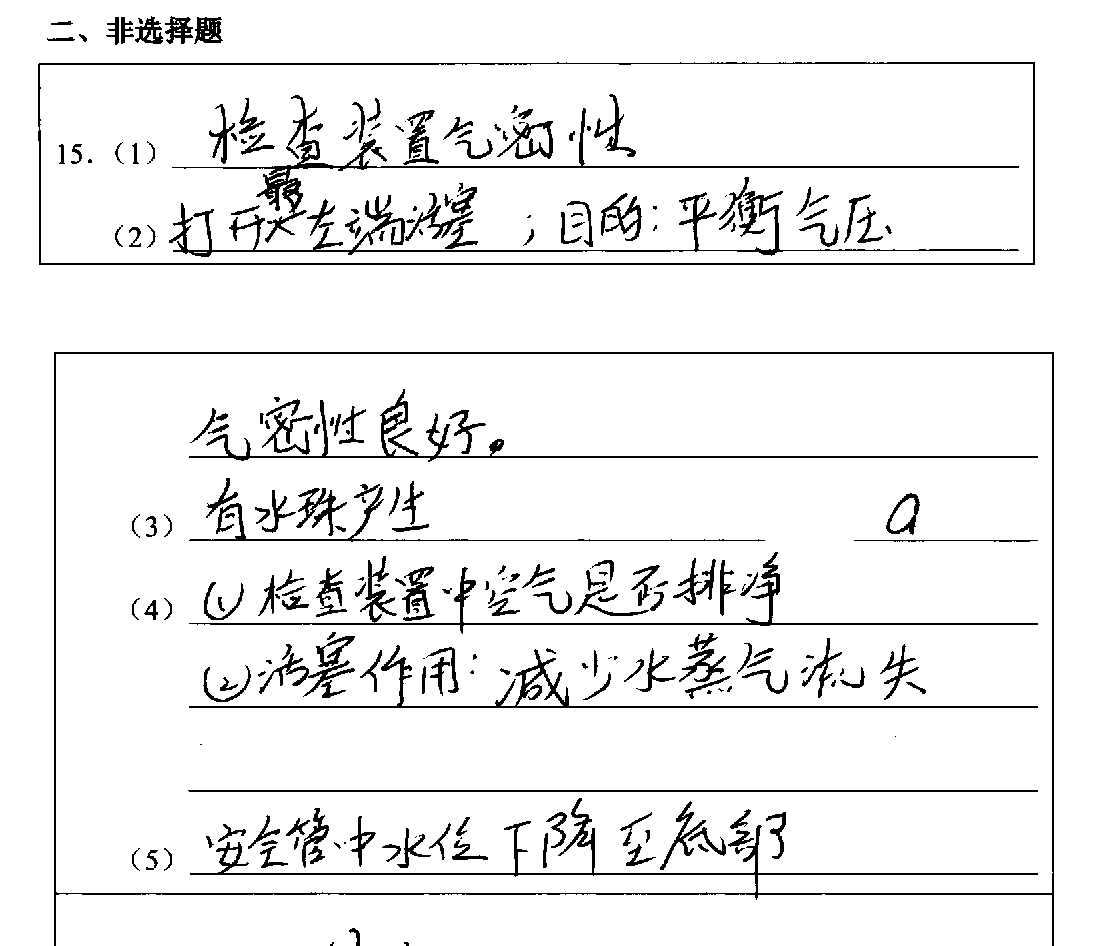 二、非选择题
15.（1）检查装置气密性
（2）打开最左端活塞；目的：平衡气压
气密性良好。
（3）有水珠产生 a
（4）(1)检查装置中空气是否排净
(2)活塞作用：减少水蒸气流失
（5）安全管中水位下降至底部